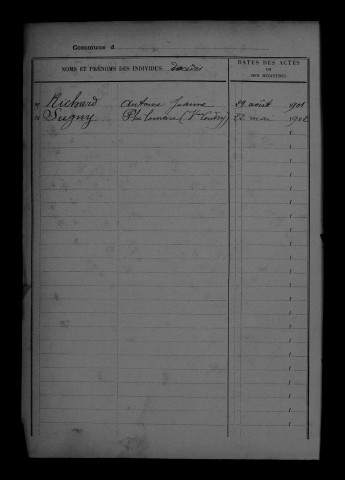 Commune d
NOMS ET PRÉNOMS DES INDIVIDUS décédés
DATES DES ACTES
OU
DES REGISTRES
Richard Antoine Jeanne 29 août 1901
Sugny Philomène (Vve) 22 mai 1902